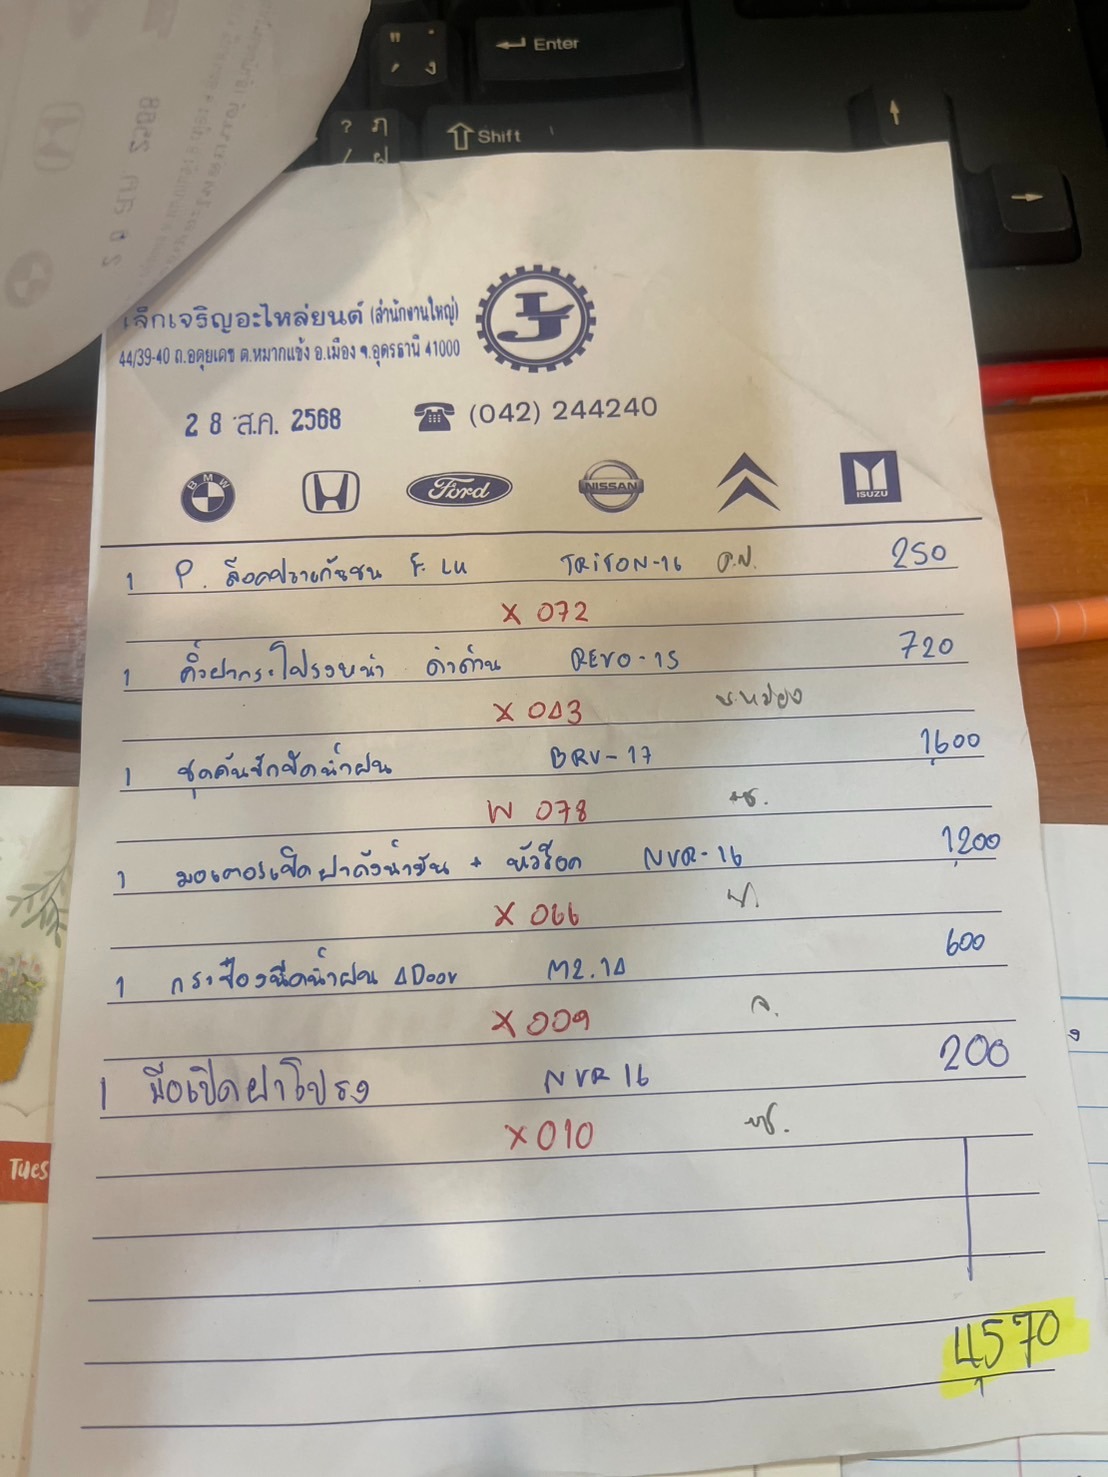 Enter
Shift
เล็กเจริญอะไหล่ยนต์ (สำนักงานใหญ่)
44/39-40 ถ.อดุยเดช ต.หมากแข้ง อ.เมือง จ.อุดรธานี 41000
2 8 ส.ค. 2568
(042) 244240
BMW
Ford
NISSAN
ISUZU
1 P. ล็อคปลายกันชน F. LH TRITON-16 250
X 072
1 คิ้วฝากระโปรงหน้า ดำด้าน REVO-15 720
X 043
1 ชุดคันชักปัดน้ำฝน BRV-17 1,600
W 078
1 มอเตอร์เปิดฝาถังน้ำมัน + หัวล็อค NVR-16 1,200
X 066
1 กระป๋องฉีดน้ำฝน 4Door M2.14 600
X 009
1 มือเปิดฝาโปรง NVR 16 200
X 010
4,570
Tues